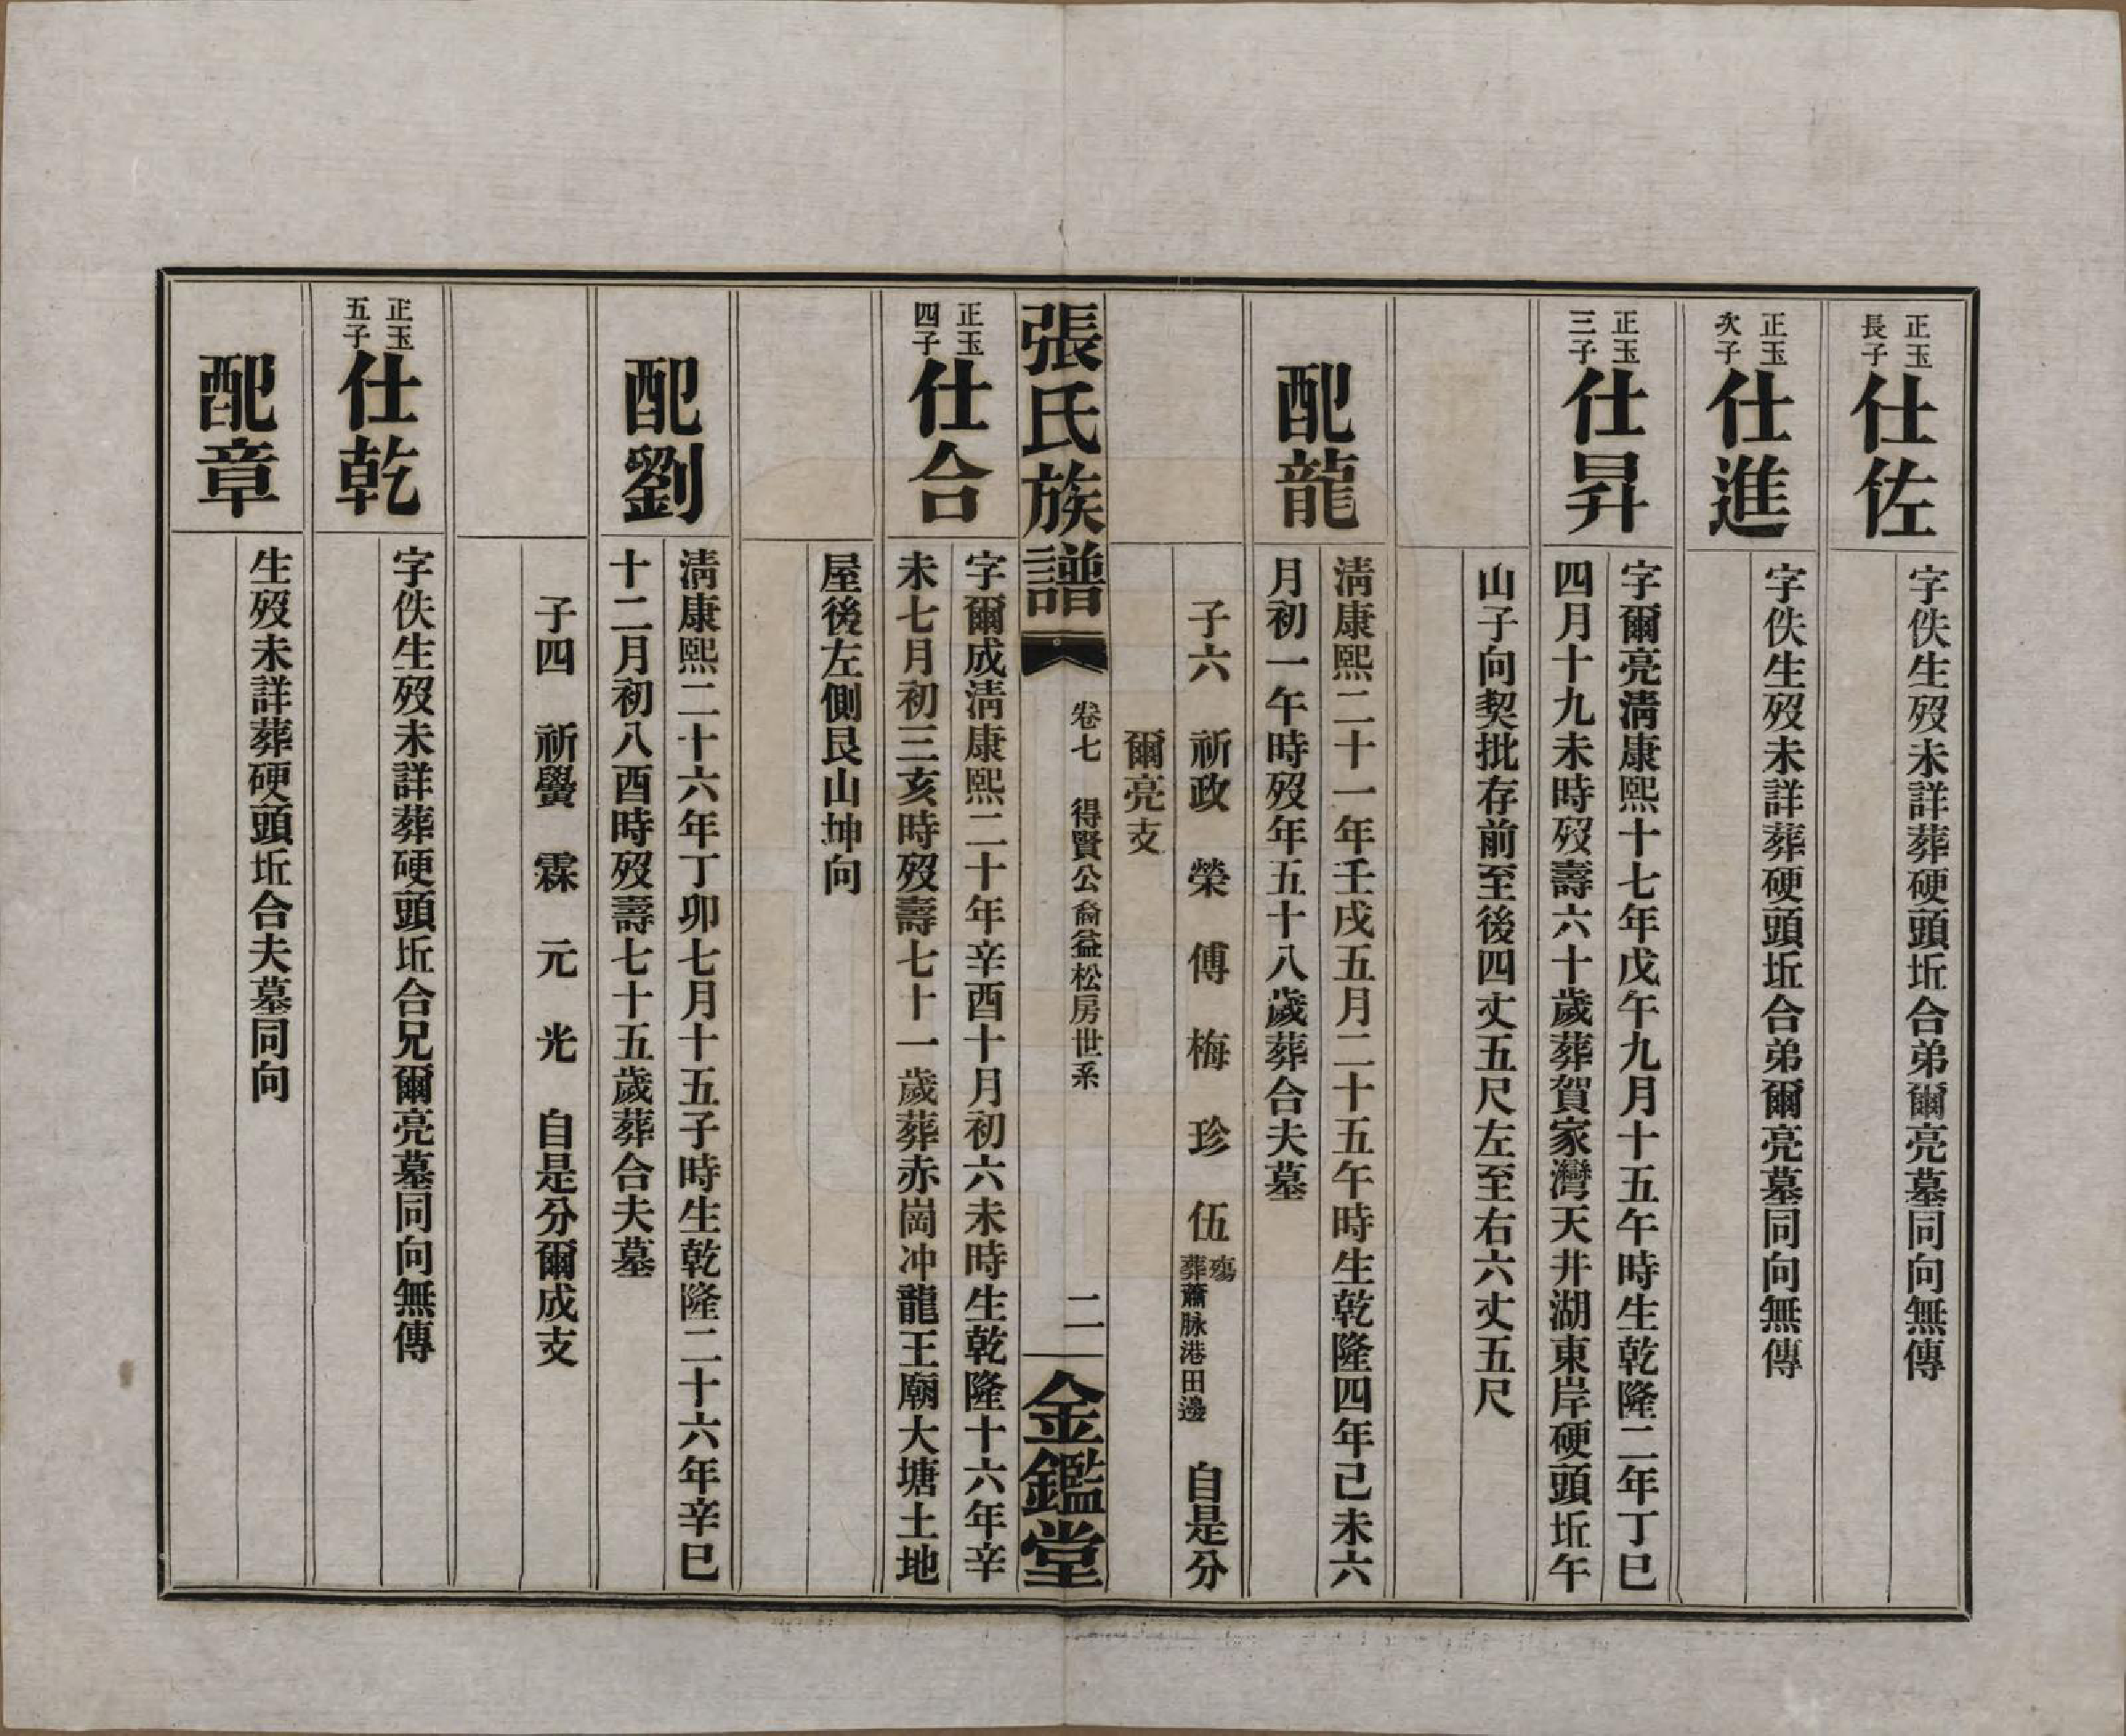 正玉
長子
仕佐
字佚生歿未詳葬硬頭坵合弟爾亮墓同向無傳
正玉
次子
仕進
字佚生歿未詳葬硬頭坵合弟爾亮墓同向無傳
正玉
三子
仕昇
字爾亮淸康熙十七年戊午九月十五午時生乾隆二年丁巳
四月十九未時歿壽六十歲葬賀家灣天井湖東岸硬頭坵午
山子向契批存前至後四丈五尺左至右六丈五尺
配龍
淸康熙二十一年壬戌五月二十五午時生乾隆四年己未六
月初一午時歿年五十八歲葬合夫墓
子六 祈政 榮 傅 梅 珍 伍 殤葬蕭脉港田邊 自是分
爾亮支
張氏族譜 卷七 得賢公裔益松房世系 二 金鑑堂
正玉
四子
仕合
字爾成淸康熙二十年辛酉十月初六未時生乾隆十六年辛
未七月初三亥時歿壽七十一歲葬赤崗冲龍王廟大塘土地
屋後左側艮山坤向
配劉
淸康熙二十六年丁卯七月十五子時生乾隆二十六年辛巳
十二月初八酉時歿壽七十五歲葬合夫墓
子四 祈黌 霖 元 光 自是分爾成支
正玉
五子
仕乾
字佚生歿未詳葬硬頭坵合兄爾亮墓同向無傳
配章
生歿未詳葬硬頭坵合夫墓同向